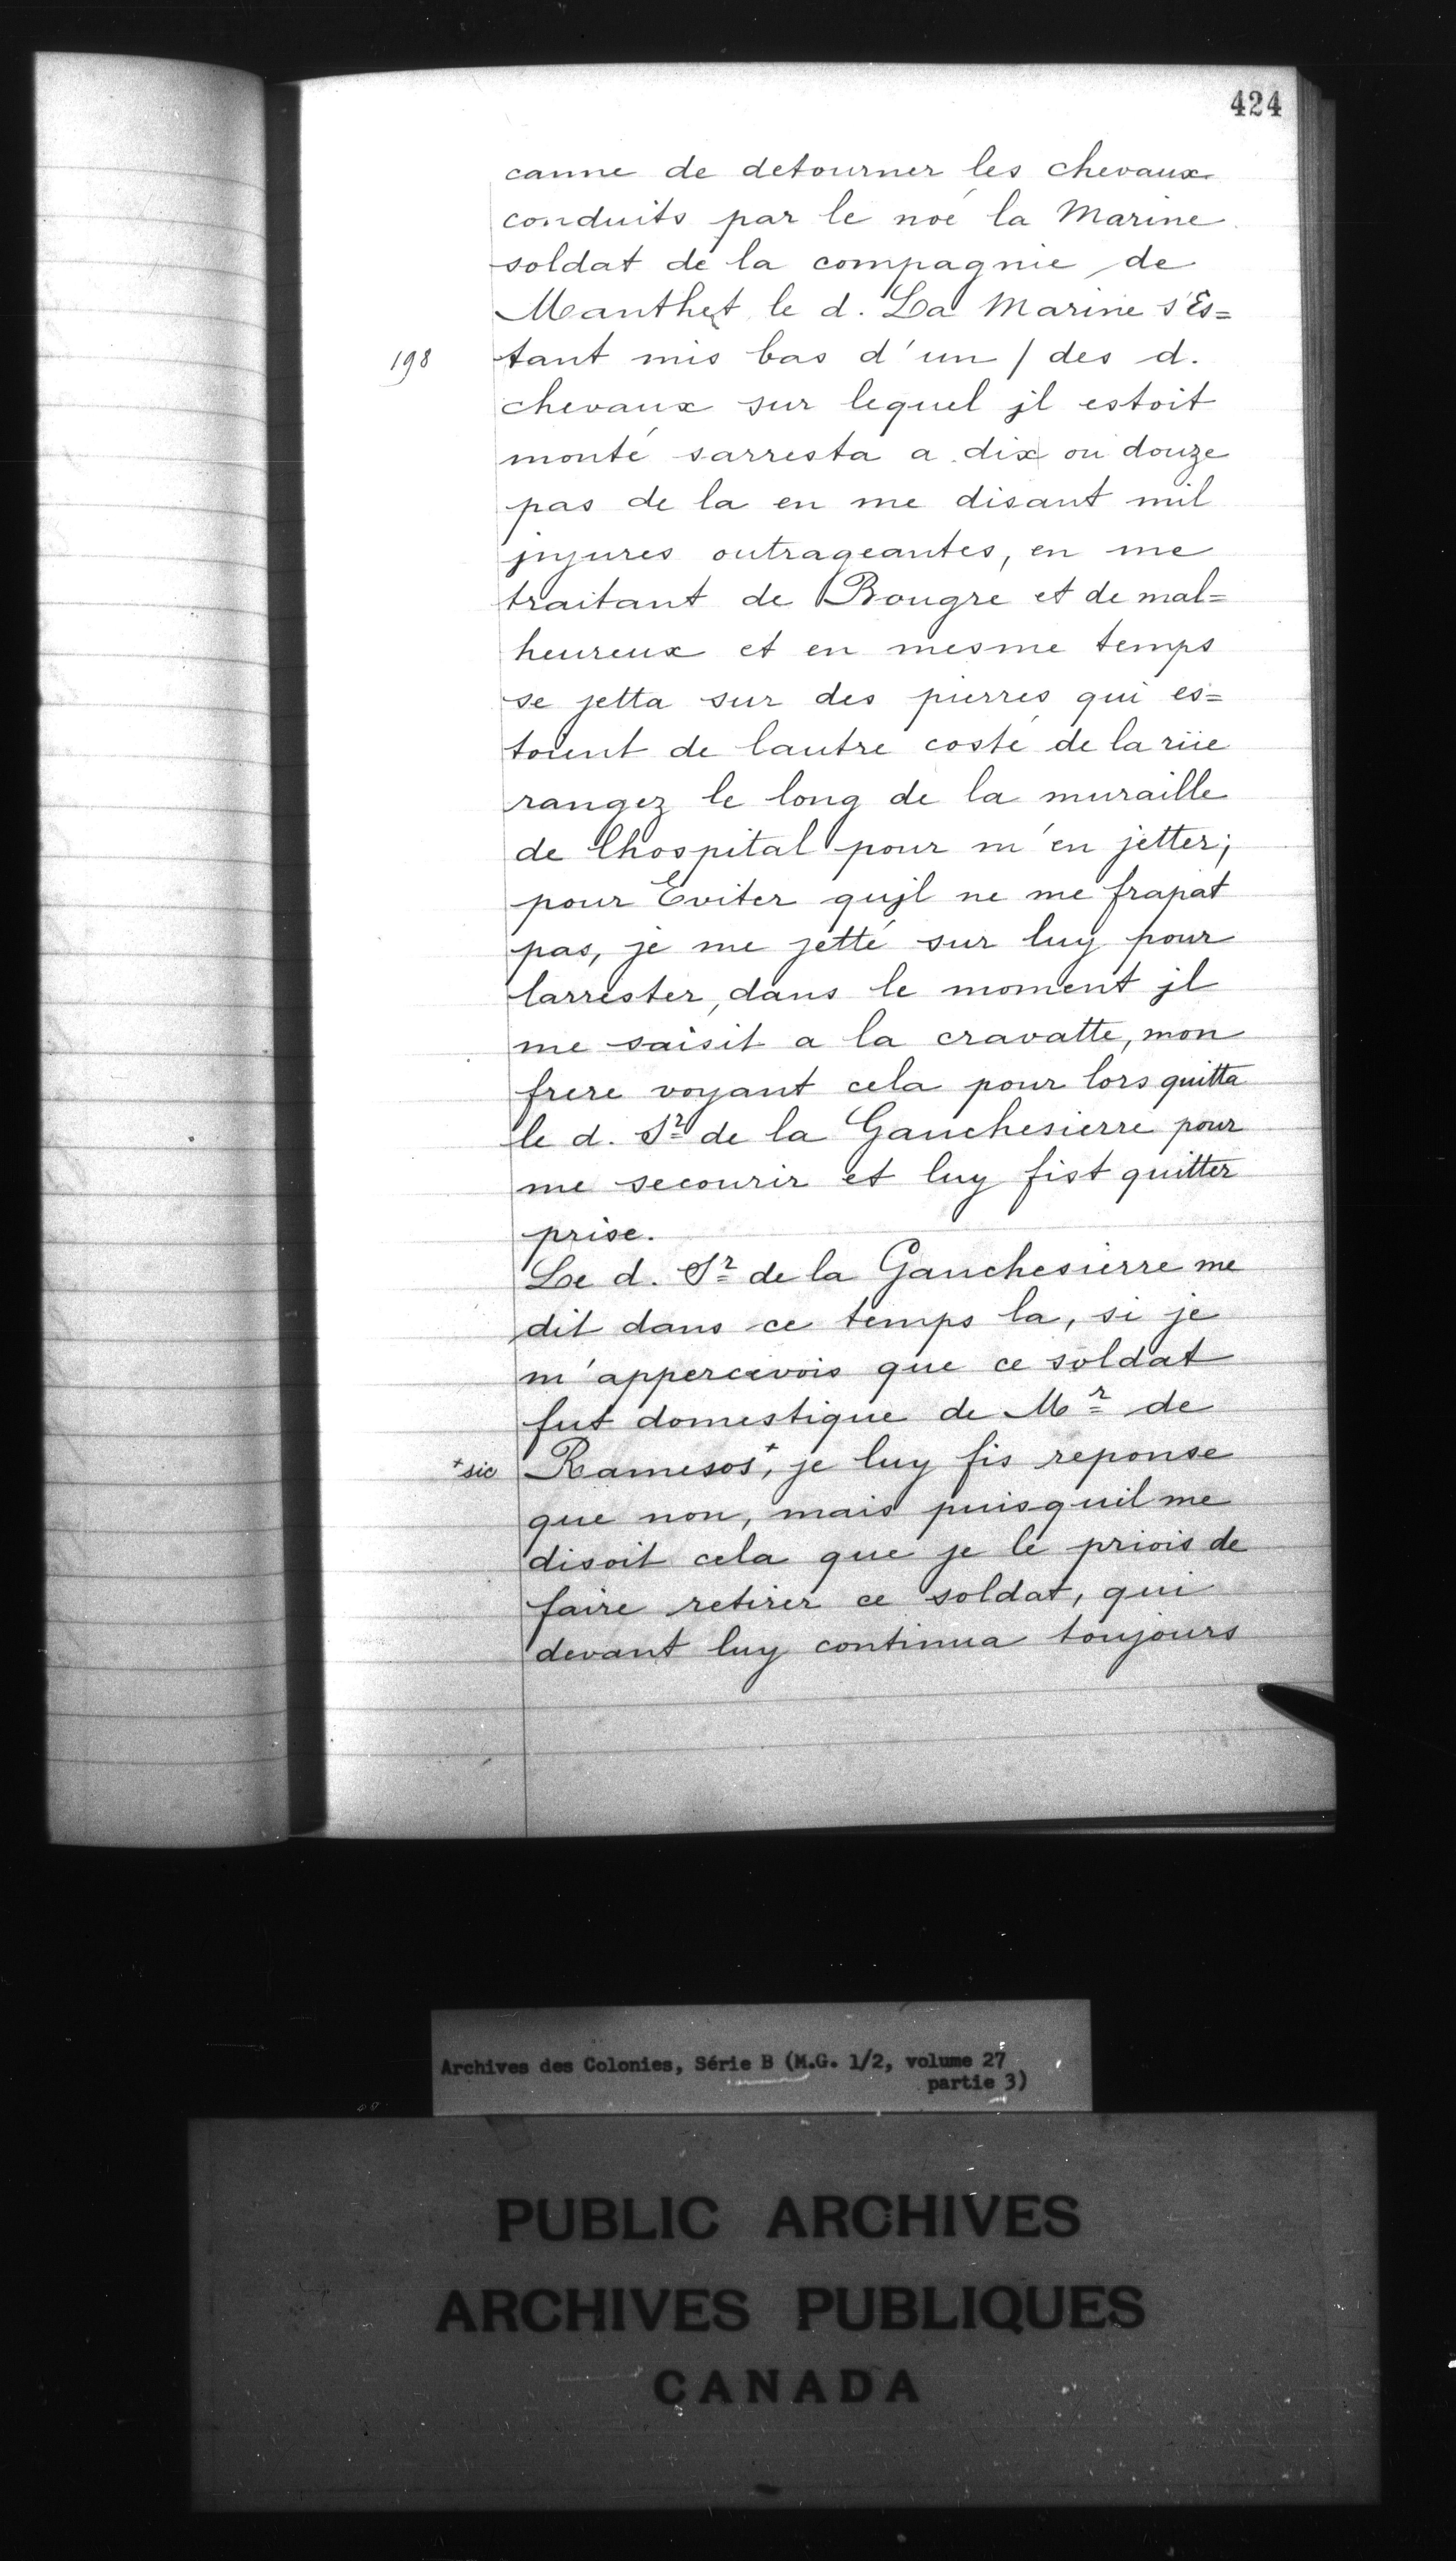 424
canne de detourner les chevaux
conduits par le noé la Marine
soldat de la compagnie de
Manthet le d. La Marine s'Es=
198 tant mis bas d'un / des d.
chevaux sur lequel jl estoit
monté sarresta a dix ou douze
pas de la en me disant mil
jnjures outrageantes, en me
traitant de Bougre et de mal=
heureux et en mesme temps
se jetta sur des pierres qui es=
toient de lautre costé de la rüe
rangez le long de la muraille
de lhospital pour m'en jetter;
pour Eviter qujl ne me frapat
pas, je me jetté sur luy pour
larrester, dans le moment jl
me saisit a la cravatte, mon
frere voyant cela pour lors quitta
le d. Sr de la Gauchesierre pour
me secourir et luy fist quitter
prise.
Le d. Sr de la Gauchesierre me
dit dans ce temps la, si je
m'appercevois que ce soldat
fut domestique de Mr de
+sic Ramesos+, je luy fis reponse
que non, mais puisquil me
disoit cela que je le priois de
faire retirer ce soldat, qui
devant luy continua toujours
Archives des Colonies, Série B (M.G. 1/2, volume 27
partie 3)
PUBLIC ARCHIVES
ARCHIVES PUBLIQUES
CANADA